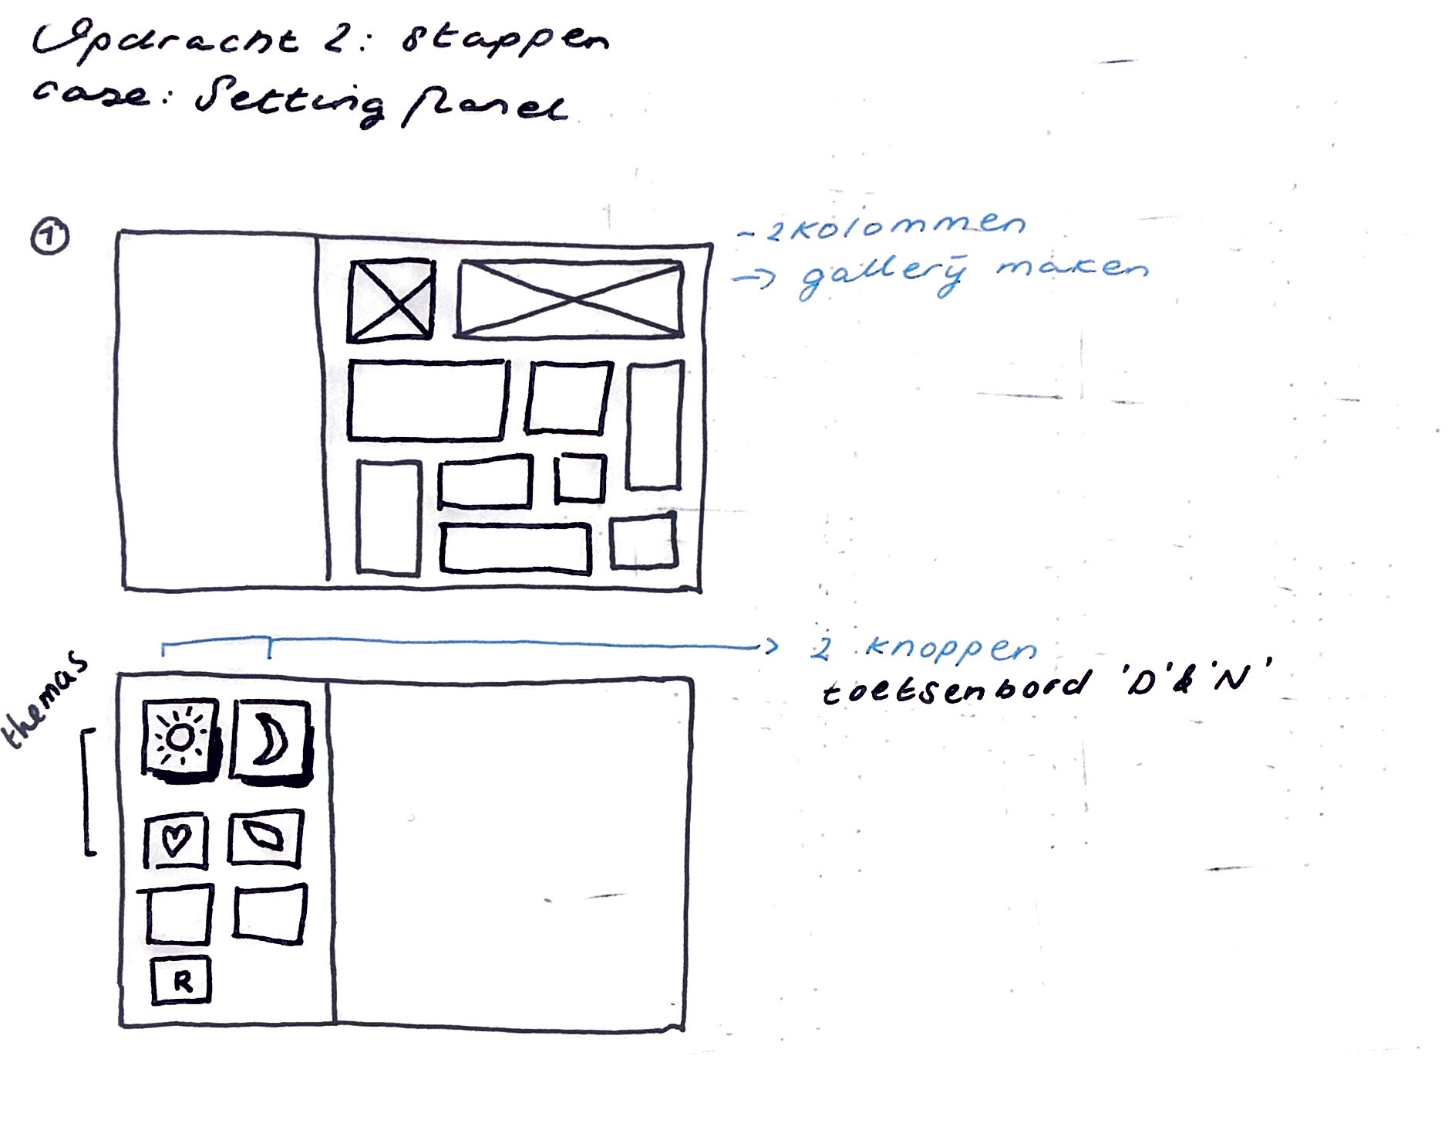 Opdracht 2: stappen
case: Setting Panel
1
- 2 kolommen
-> gallerij maken
themas
2 knoppen
toetsenbord 'D' & 'N'
R